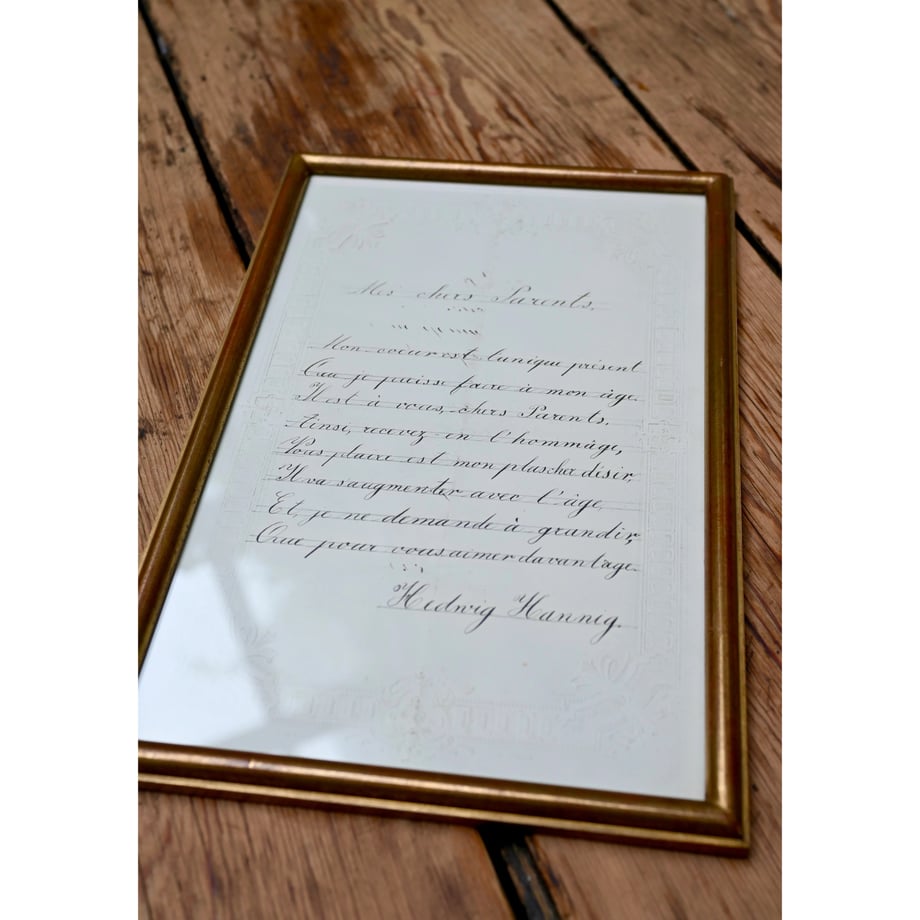 Mes chers Parents,
Mon coeur est l'unique présent
Que je puisse faire à mon âge.
Il est à vous, chers Parents.
Ainsi, recevez en l'hommâge,
Vous plaire est mon plus cher désir,
Il va s'augmenter avec l'âge,
Et je ne demande à grandir,
Que pour vous aimer davantage.
Hedwig Hannig.